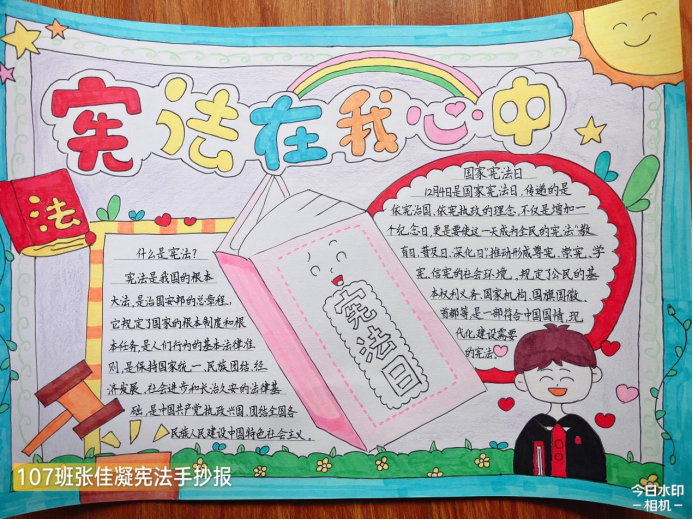 宪法在我心中
法
什么是宪法?
宪法是我国的根本
大法,是治国安邦的总章程,
它规定了国家的根本制度和根
本任务,是人们行为的基本法律准
则,是保持国家统一、民族团结、经
济发展、社会进步和长治久安的法律基
础,是中国共产党执政兴国、团结全国各
民族人民建设中国特色社会主义。
宪法日
国家宪法日
12月4日是国家宪法日,传递的是
依宪治国,依宪执政的理念,不仅是增加一
个纪念日,更是要使这一天成为全民的宪法"教
育日、普及日、深化日",推动形成尊宪、崇宪、学
宪、信宪的社会环境。规定了公民的基
本权利义务,国家机构、国旗国徽、
首都等,是一部符合中国国情,现
代化建设需要
的宪法
107班张佳凝宪法手抄报
今日水印
-相机-